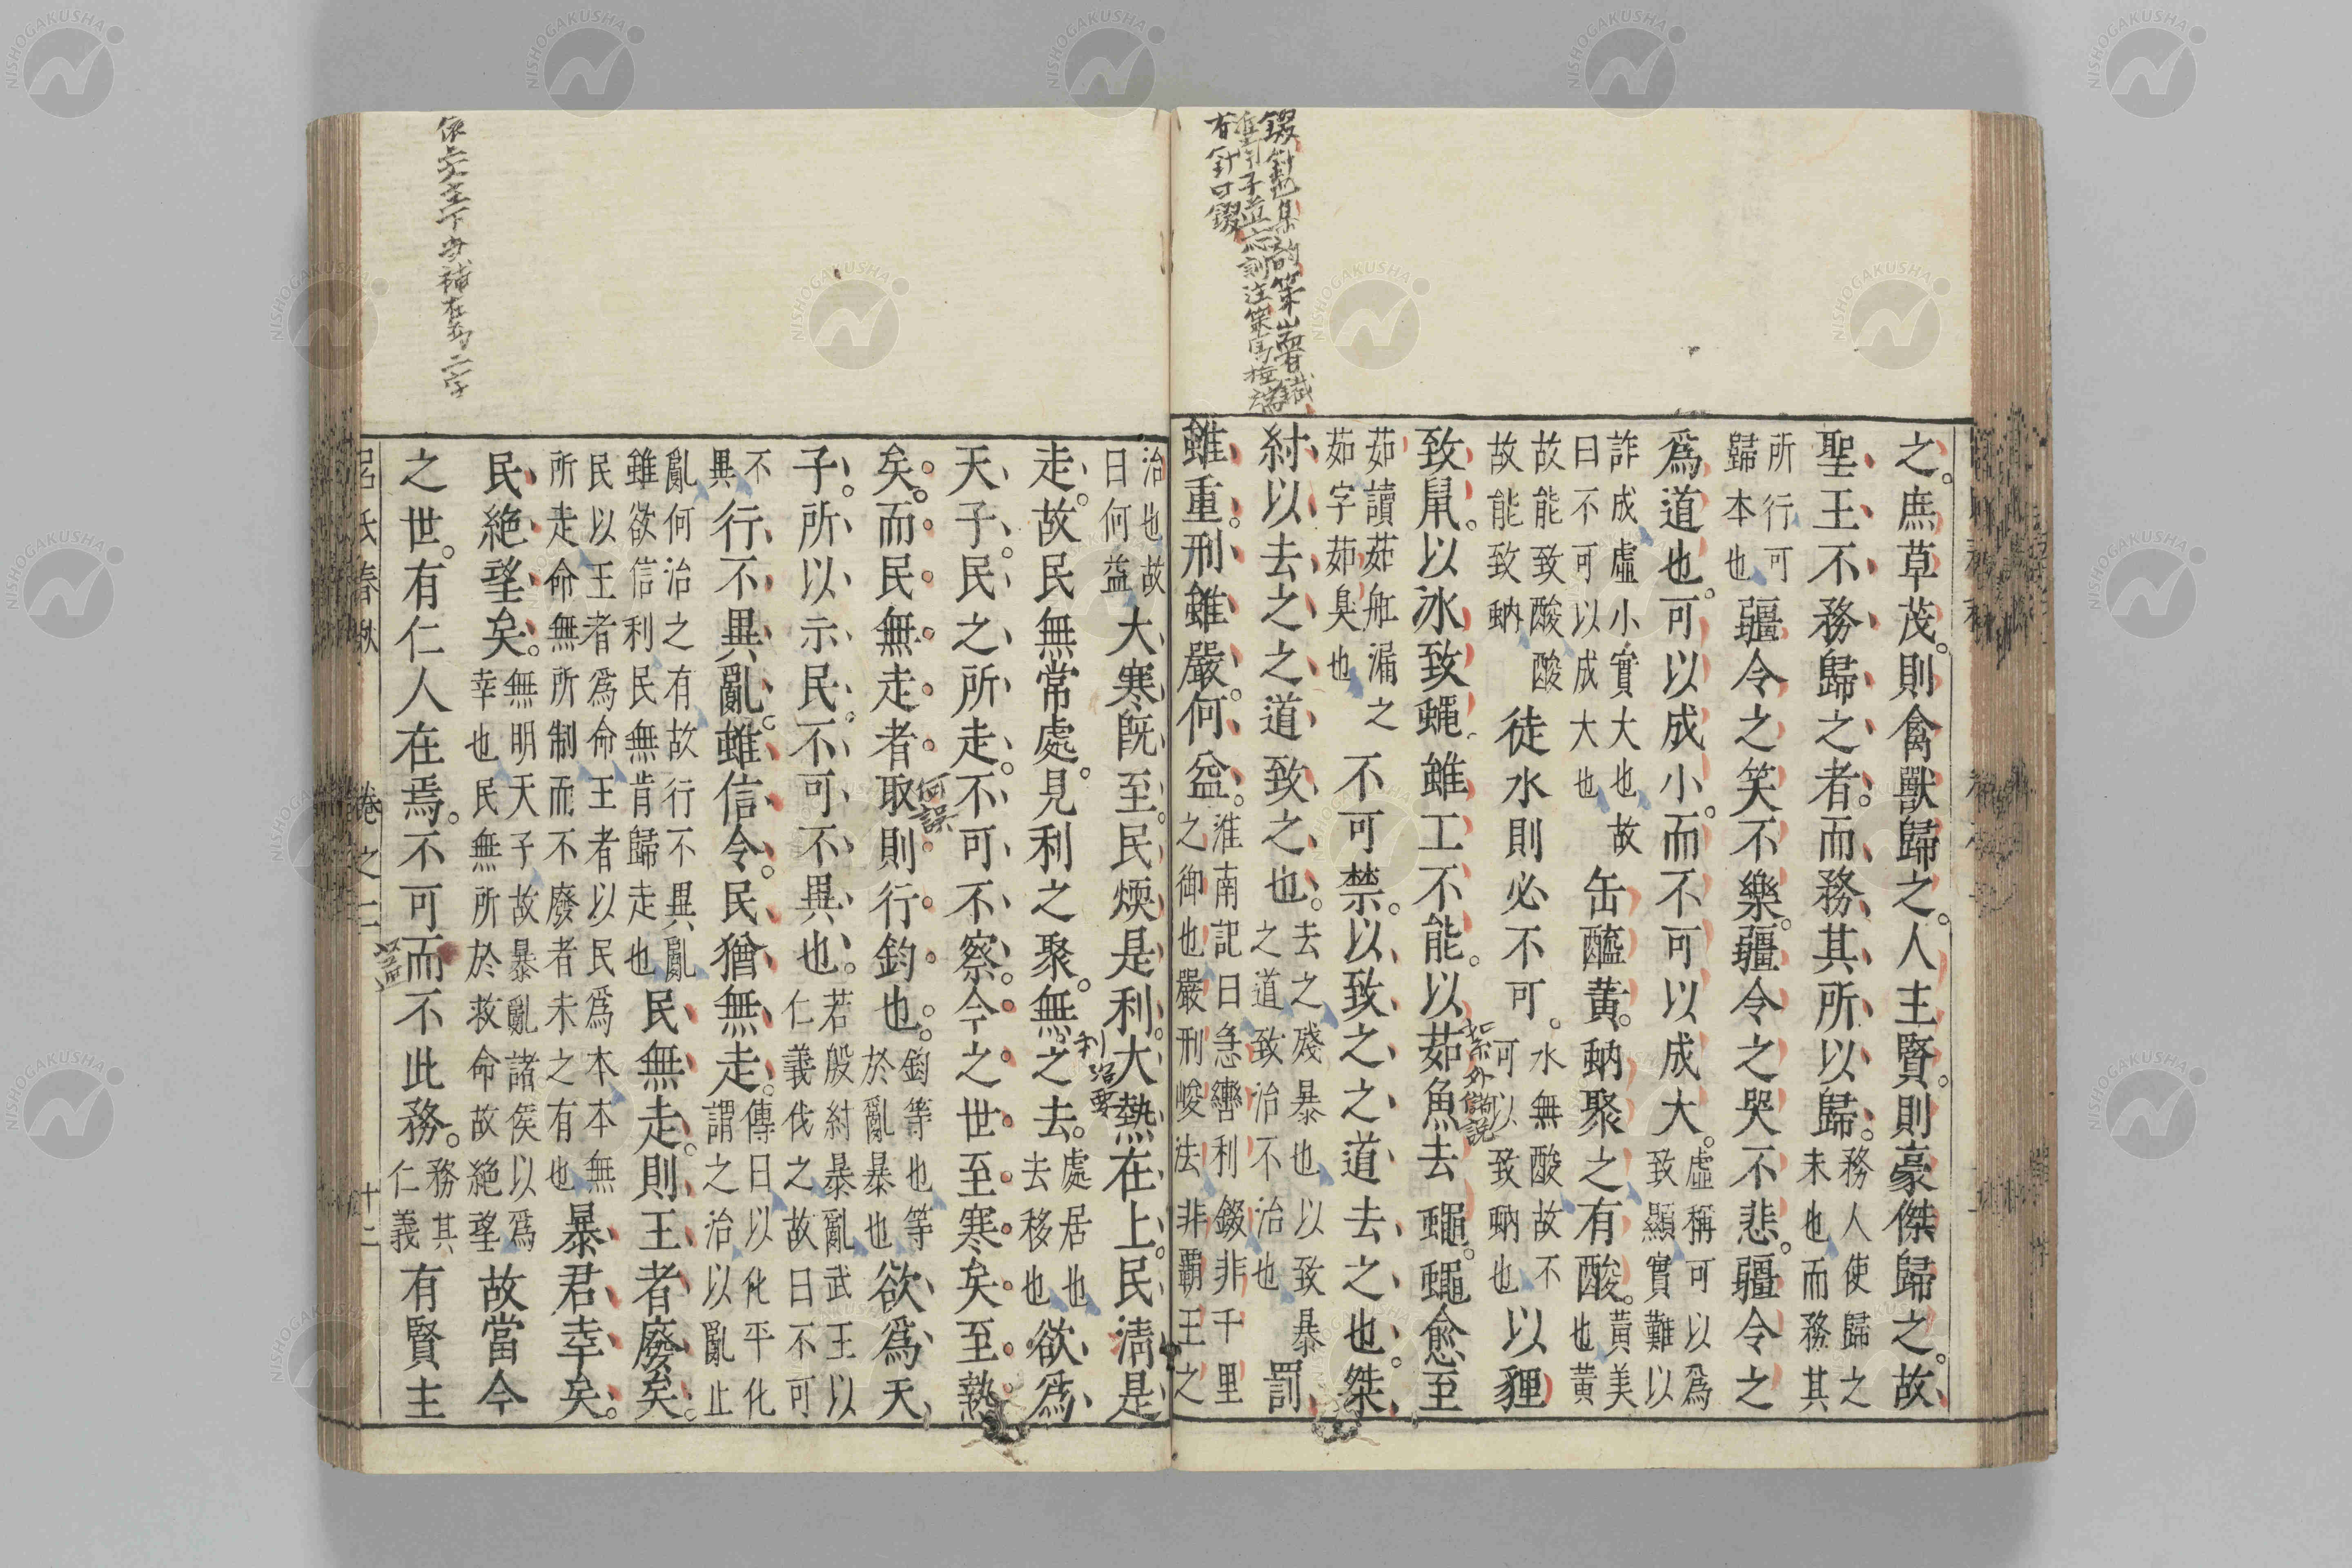 錣針也集韻策耑有鐵
有針曰錣
之。庶草茂。則禽獸歸之。人主賢。則豪傑歸之。故
聖王不務歸之者。而務其所以歸。務人使歸之未也而務其
所行可歸本也疆令之笑不樂。疆令之哭不悲。疆令之
爲道也。可以成小。而不可以成大。虛稱可以爲致顯實難以
詐成虛小實大也故曰不可以成大也缶醯黃。蚋聚之有酸。黃美也黃
故能致酸酸故能致蚋徒水則必不可。水無酸故不可以致蚋也以貍
致鼠。以冰致蠅。雖工不能。以茹魚去蠅。蠅愈至
茹讀茹船漏之茹字茹臭也不可禁。以致之之道去之也。桀
紂以去之之道致之也。去之殘暴也以致暴之道致治不治也罰
雖重。刑雖嚴。何益。淮南記曰急轡利錣非千里之御也嚴刑峻法非霸王之
絮外儲說
治也故曰何益大寒旣至。民煖是利。大熱在上。民淸是
走。故民無常處。見利之聚。無之去。處居也去移也欲爲
利治要
天子。民之所走。不可不察。今之世。至寒矣。至熱
矣。而民無走者。取則行鈞也。鈞等也等於亂暴也欲爲天
何誤
子。所以示民。不可不異也。若殷紂暴亂武王以仁義伐之故曰不可
不異行不異亂。雖信令。民猶無走。傳曰以化平化謂之治以亂止
亂何治之有故行不異亂雖欲信利民無肯歸走也民無走。則王者廢矣。
民以王者爲命王者以民爲本本無所走命無所制而不廢者未之有也暴君幸矣。
民絕望矣。無明天子故暴亂諸侯以爲幸也民無所於救命故絕望故當今
之世。有仁人在焉。不可而不此務。務其仁義有賢主
呂氏春秋 卷之二 十二
NISHOGAKUSHA